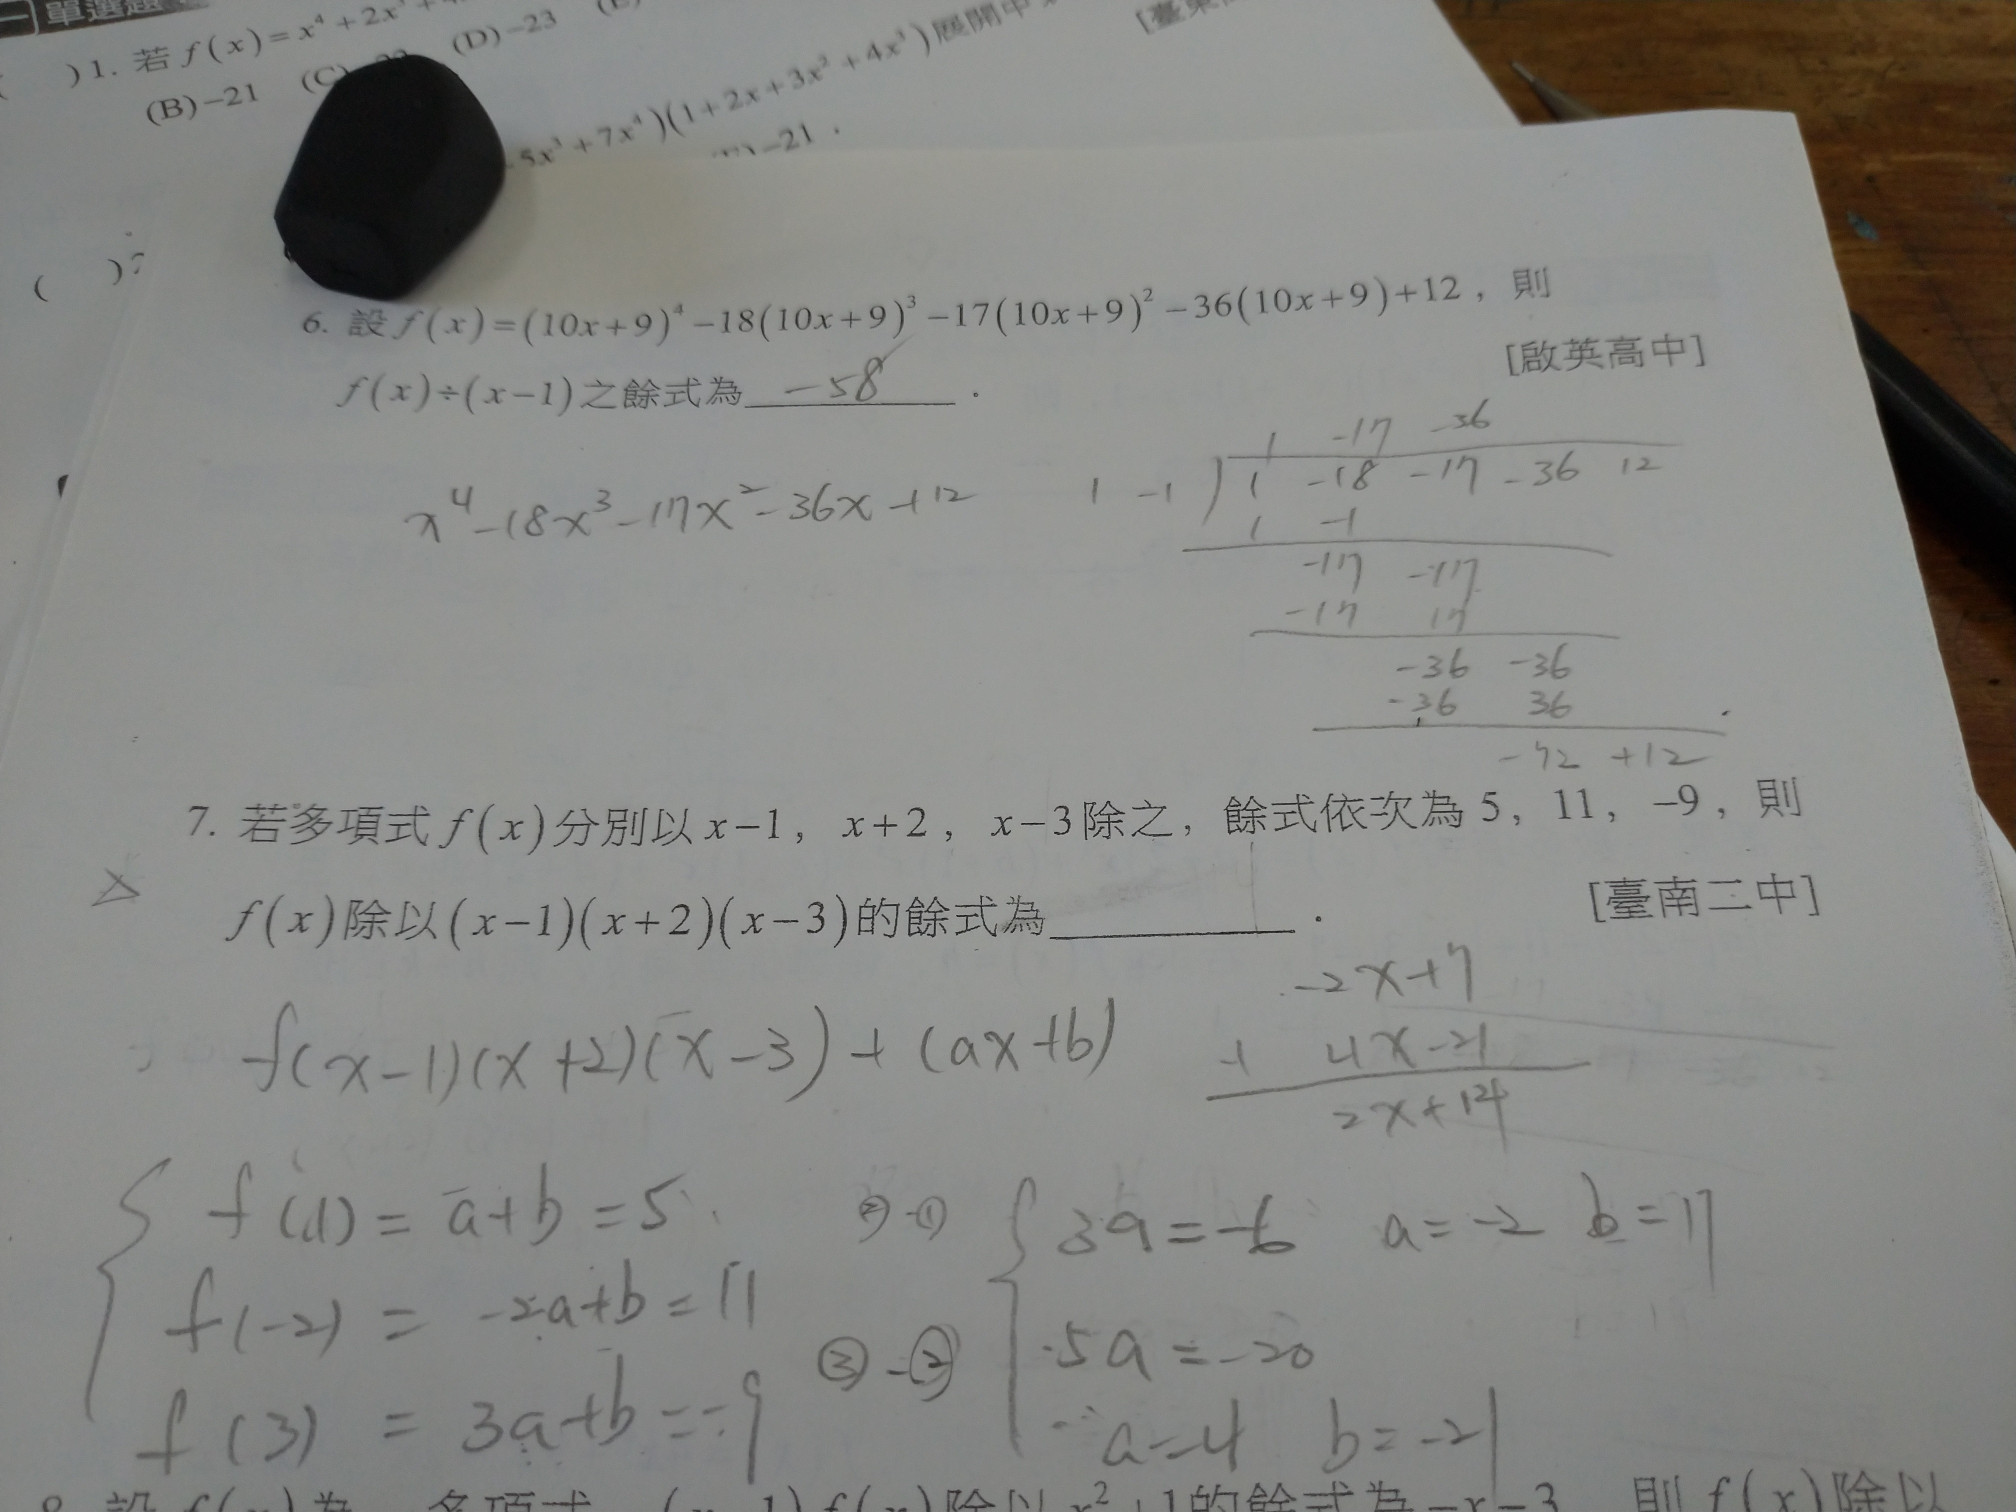 單選題
( )1. 若 f(x)=x⁴+2x³
(B)-21 (C) (D)-23
5x³+7x⁴)(1+2x+3x²+4x³)展開中
-21.
( )
6. 設 f(x)=(10x+9)⁴-18(10x+9)³-17(10x+9)²-36(10x+9)+12，則
f(x)÷(x-1)之餘式為 -58 .
[啟英高中]
x⁴-18x³-17x²-36x+12
1 -17 -36
1 -1 ) 1 -18 -17 -36 12
1 -1
-17 -17
-17 17
-36 -36
-36 36
-72 +12
7. 若多項式 f(x)分別以 x-1，x+2，x-3除之，餘式依次為 5，11，-9，則
△
f(x)除以(x-1)(x+2)(x-3)的餘式為 .
[臺南二中]
f(x-1)(x+2)(x-3)+(ax+b)
-2x+7
+ 4x-21
2x+14
f(1)=a+b=5 ②-① 3a=-6 a=-2 b=11
f(-2)=-2a+b=11
③-② 5a=-20
f(3)=3a+b=-9
a=-4 b=-21
8. 設 f(x)為一多項式，(x-1)f(x)除以 x²+1的餘式為-x-3，則 f(x)除以